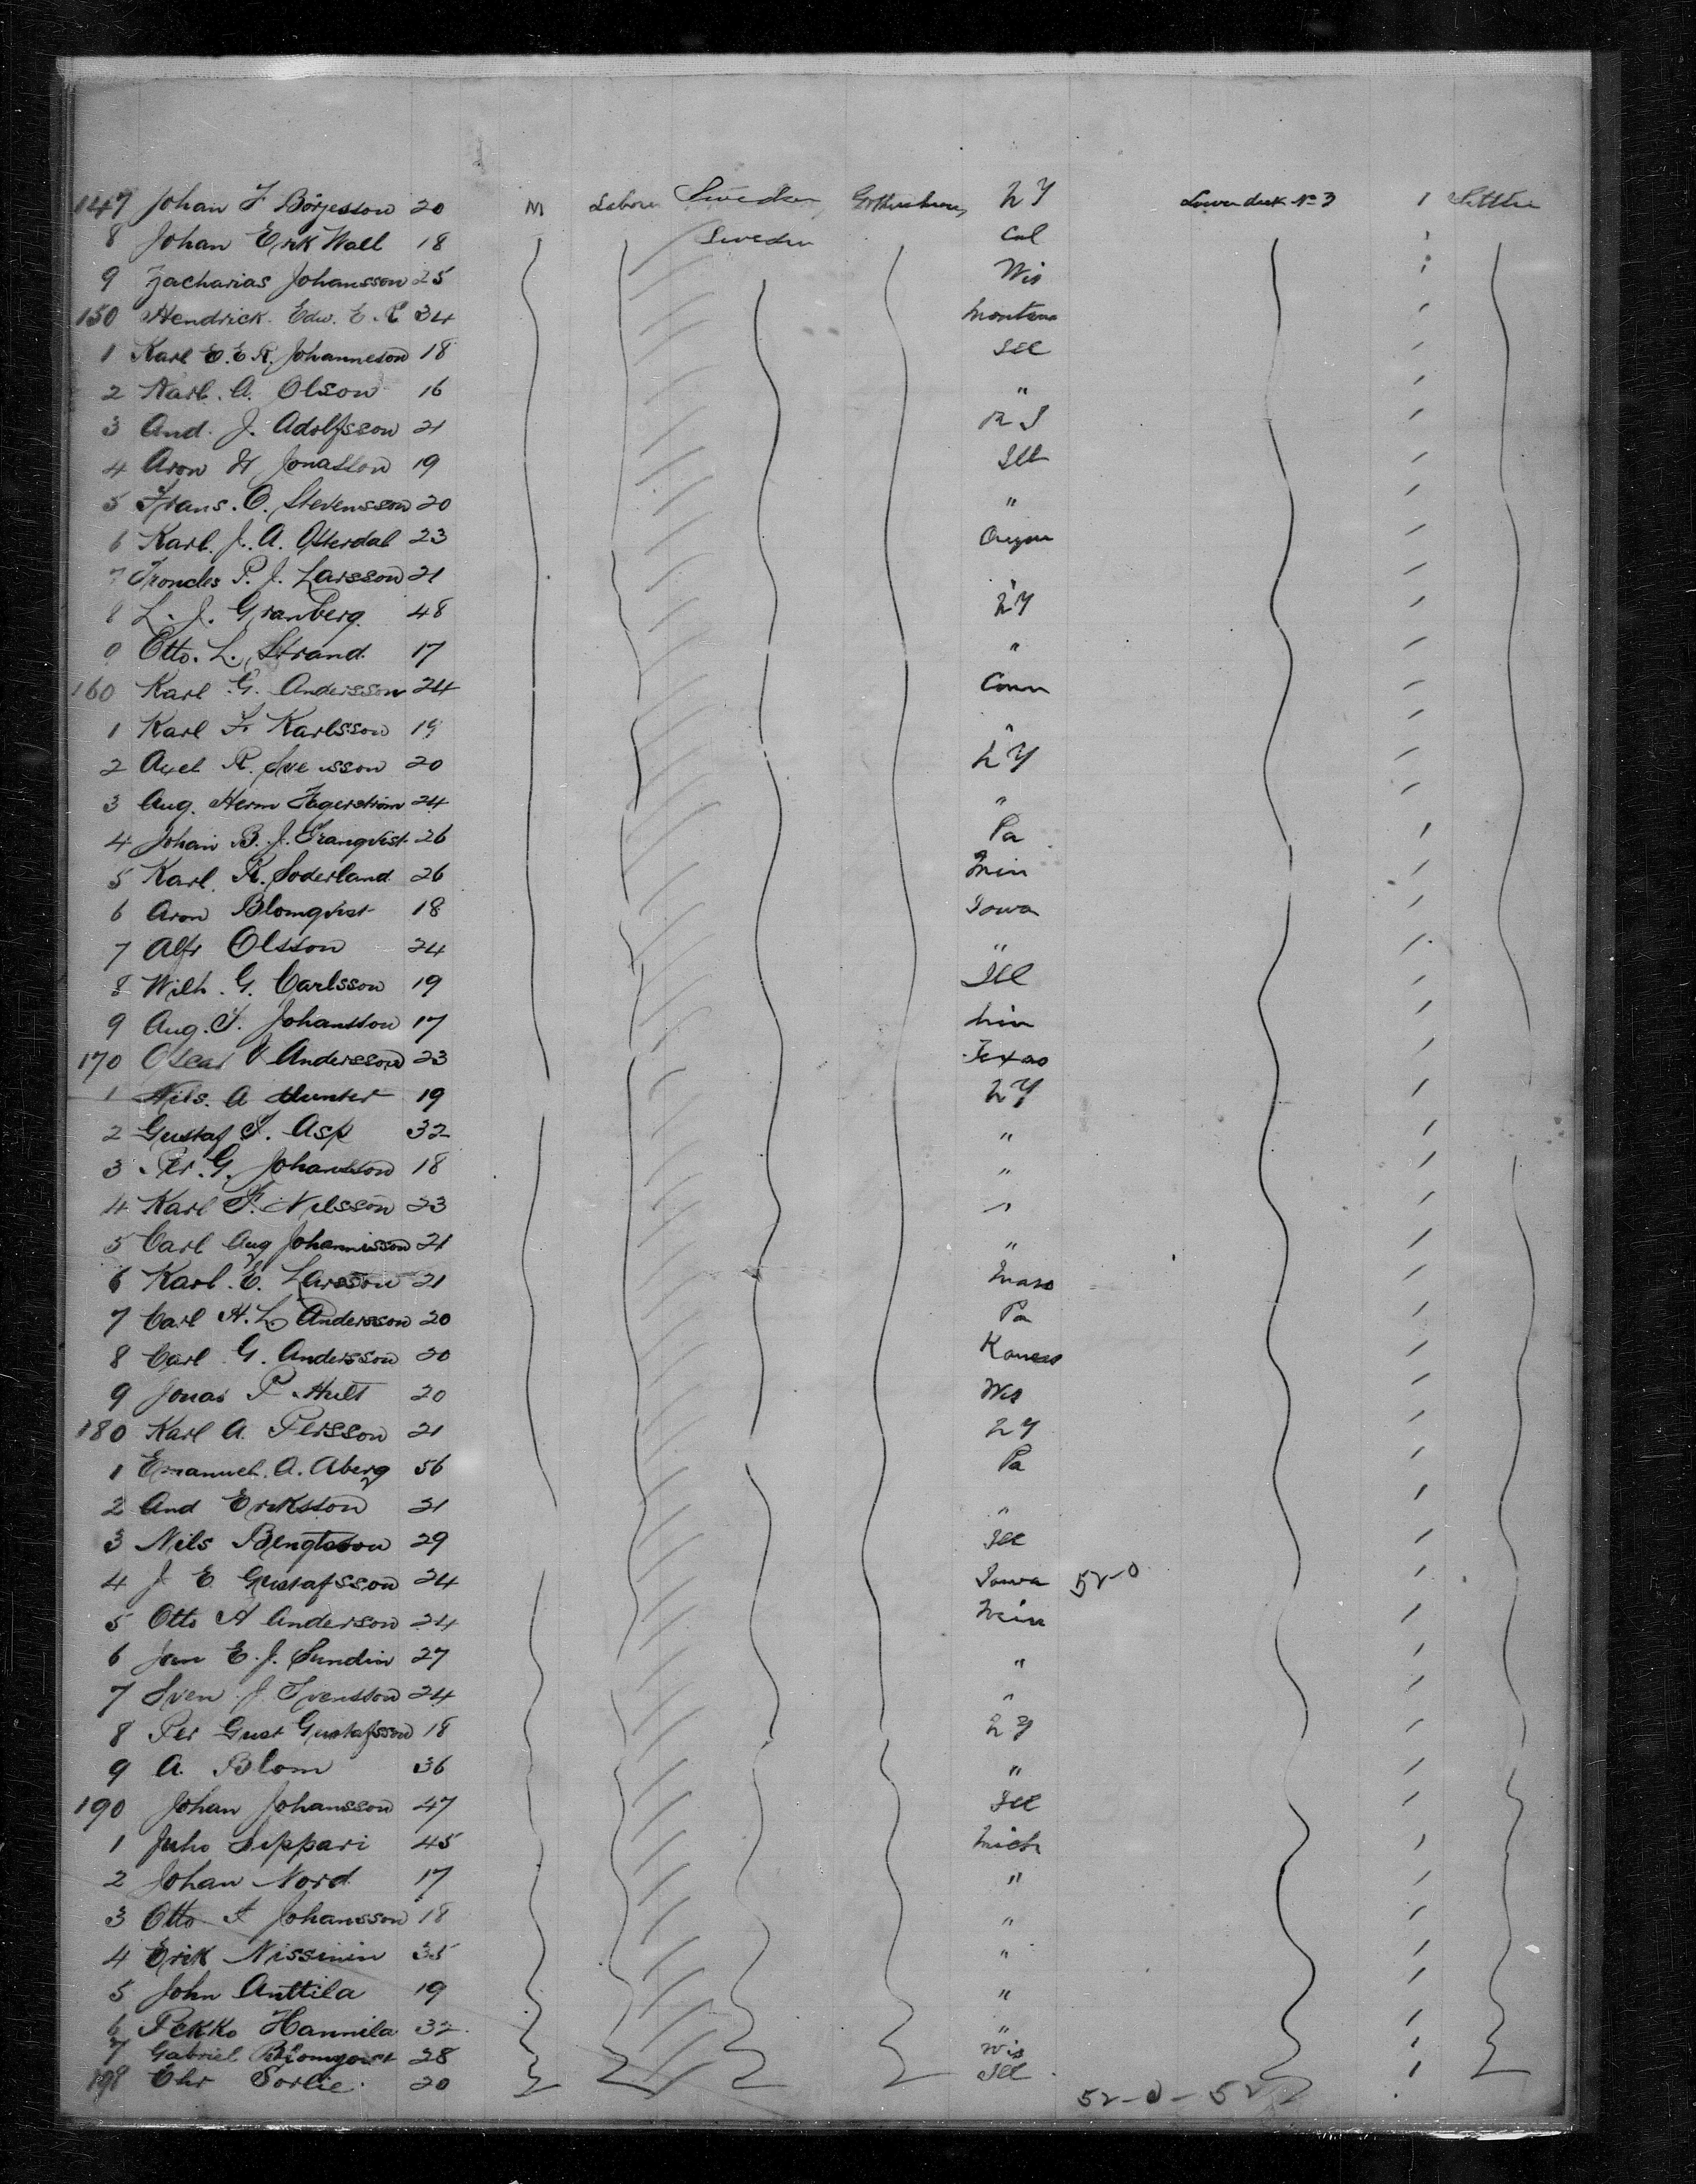 147 Johan F Börjesson 20 M Labour Sweden Gothenburg NY Lower deck No 3 1 Settler
8 Johan Erik Wall 18 Sweden Cal
9 Zacharias Johansson 25 Wis
150 Hendrick Edw. E. R 34 Montana
1 Karl E. E. R. Johanneson 18 Ill
2 Karl. A. Olson 16 "
3 And. J. Adolfsson 21 R I
4 Aron H Jonasson 19 Ill
5 Frans. O. Stevensson 20 "
6 Karl. J. A. Osterdal 23 Oregon
7 P. J. Larsson 21 "
8 L. J. Granberg 48 NY
9 Otto. L. Strand 17 "
160 Karl G. Andersson 24 Conn
1 Karl F Karlsson 19 "
2 Axel R. Svensson 20 NY
3 Aug. Herm Fagerström 24 "
4 Johan B. J. Granqvist 26 Pa
5 Karl. R. Soderland 26 Min
6 Aron Blomqvist 18 Iowa
7 Alfr Olsson 24 "
8 Wilh. G. Carlsson 19 Ill
9 Aug. F. Johansson 17 Min
170 Oscar V Andersson 23 Texas
1 Nils. A Hunter 19 NY
2 Gustaf F. Asp 32 "
3 Per. G. Johansson 18 "
4 Karl F. Nilsson 23 "
5 Carl Aug Johannisson 21 "
6 Karl. E. Larsson 21 Mass
7 Carl H. L. Andersson 20 Pa
8 Carl G. Andersson 20 Kansas
9 Jonas P. Hult 20 Wis
180 Karl A. Persson 21 NY
1 Emanuel. A. Aberg 56 Pa
2 And Eriksson 21 "
3 Nils Bengtsson 29 Ill
4 J E Gustafsson 24 Iowa 52-0
5 Otto A Anderson 24 Min
6 Jan E. J. Sundin 27 "
7 Sven J. Svensson 24 "
8 Per Gust Gustafsson 18 NY
9 A. Blom 36 "
190 Johan Johansson 47 Ill
1 Juho Seppari 45 Mich
2 Johan Nord 17 "
3 Otto F Johansson 18 "
4 Erik Nissinin 35 "
5 John Anttila 19 "
6 Pekko Hannila 32 "
7 Gabriel Blomqvist 28 Wis
198 Chr Sorlie 20 Ill
52-0-52